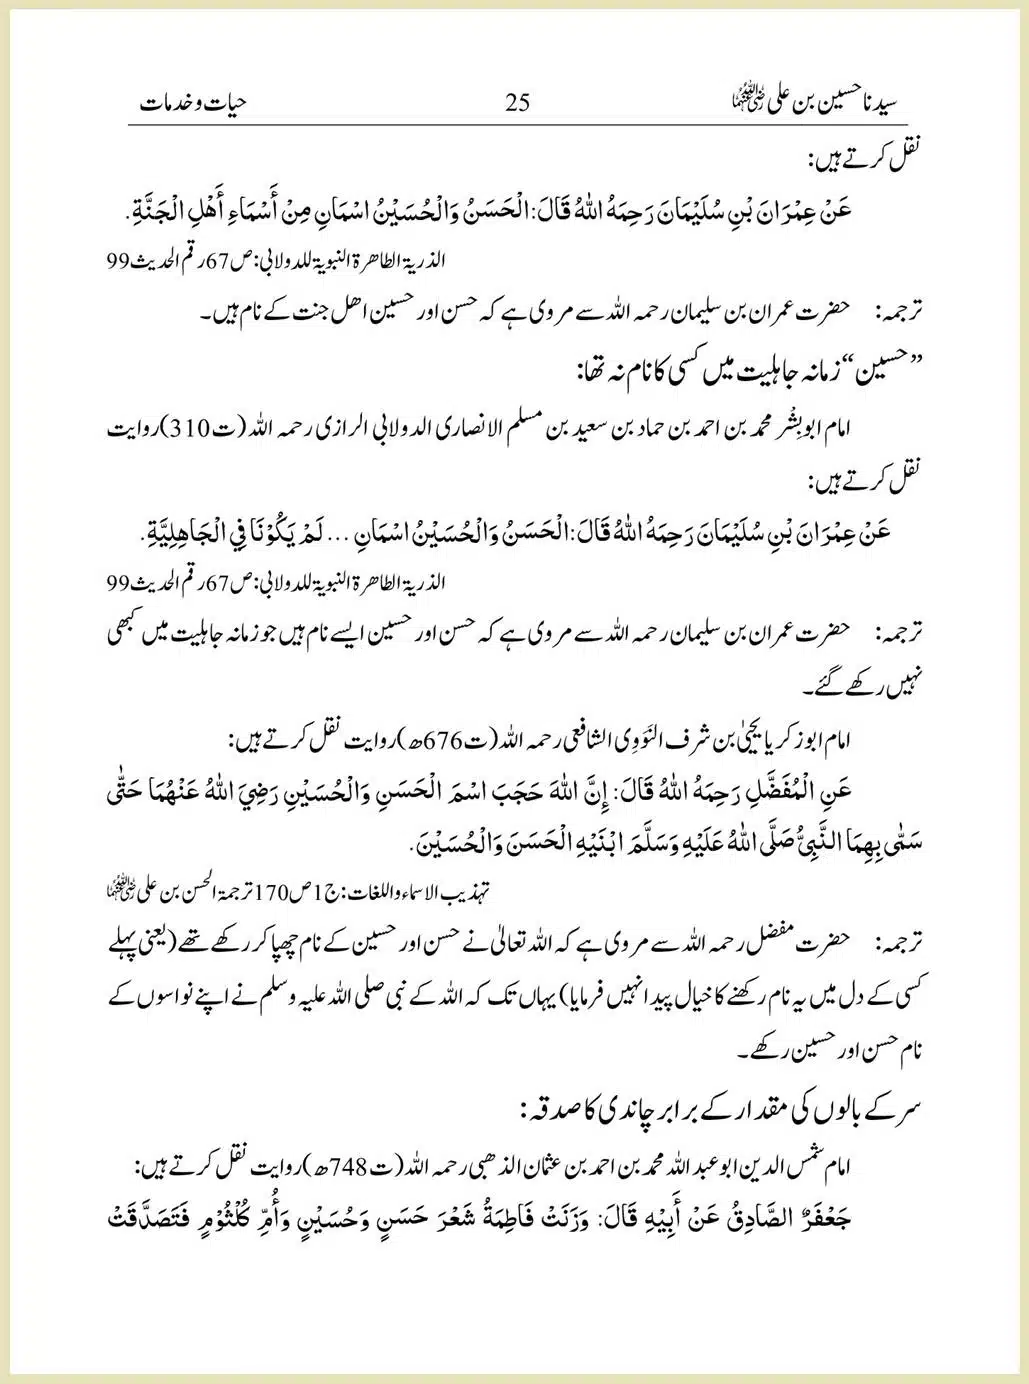 سیدنا حسین بن علی رضی اللہ عنہما 25 حیات و خدمات
نقل کرتے ہیں:
عَنْ عِمْرَانَ بْنِ سُلَيْمَانَ رَحِمَهُ اللهُ قَالَ: الْحَسَنُ وَالْحُسَيْنُ اسْمَانِ مِنْ أَسْمَاءِ أَهْلِ الْجَنَّةِ.
الذریۃ الطاهرۃ النبویۃ للدولابی: ص67 رقم الحدیث 99
ترجمہ: حضرت عمران بن سلیمان رحمہ اللہ سے مروی ہے کہ حسن اور حسین اھل جنت کے نام ہیں۔
”حسین“ زمانہ جاہلیت میں کسی کا نام نہ تھا:
امام ابوبِشْر محمد بن احمد بن حماد بن سعید بن مسلم الانصاری الدولابی الرازی رحمہ اللہ (ت310) روایت
نقل کرتے ہیں:
عَنْ عِمْرَانَ بْنِ سُلَيْمَانَ رَحِمَهُ اللهُ قَالَ: الْحَسَنُ وَالْحُسَيْنُ اسْمَانِ ... لَمْ يَكُوْنَا فِي الْجَاهِلِيَّةِ.
الذریۃ الطاهرۃ النبویۃ للدولابی: ص67 رقم الحدیث 99
ترجمہ: حضرت عمران بن سلیمان رحمہ اللہ سے مروی ہے کہ حسن اور حسین ایسے نام ہیں جو زمانہ جاہلیت میں کبھی
نہیں رکھے گئے۔
امام ابوزکریا یحییٰ بن شرف النَوَوِی الشافعی رحمہ اللہ (ت676ھ) روایت نقل کرتے ہیں:
عَنِ الْمُفَضَّلِ رَحِمَهُ اللهُ قَالَ: إِنَّ اللهَ حَجَبَ اسْمَ الْحَسَنِ وَالْحُسَيْنِ رَضِيَ اللهُ عَنْهُمَا حَتّٰى
سَمّٰى بِهِمَا النَّبِيُّ صَلَّى اللهُ عَلَيْهِ وَسَلَّمَ ابْنَيْهِ الْحَسَنَ وَالْحُسَيْنَ.
تہذیب الاسماء واللغات: ج1 ص170 ترجمۃ الحسن بن علی رضی اللہ عنہما
ترجمہ: حضرت مفضل رحمہ اللہ سے مروی ہے کہ اللہ تعالیٰ نے حسن اور حسین کے نام چھپا کر رکھے تھے (یعنی پہلے
کسی کے دل میں یہ نام رکھنے کا خیال پیدا نہیں فرمایا) یہاں تک کہ اللہ کے نبی صلی اللہ علیہ وسلم نے اپنے نواسوں کے
نام حسن اور حسین رکھے۔
سر کے بالوں کی مقدار کے برابر چاندی کا صدقہ:
امام شمس الدین ابو عبد اللہ محمد بن احمد بن عثمان الذھبی رحمہ اللہ (ت748ھ) روایت نقل کرتے ہیں:
جَعْفَرُ الصَّادِقُ عَنْ أَبِيْهِ قَالَ: وَزَنَتْ فَاطِمَةُ شَعْرَ حَسَنٍ وَحُسَيْنٍ وَأُمِّ كُلْثُوْمٍ فَتَصَدَّقَتْ